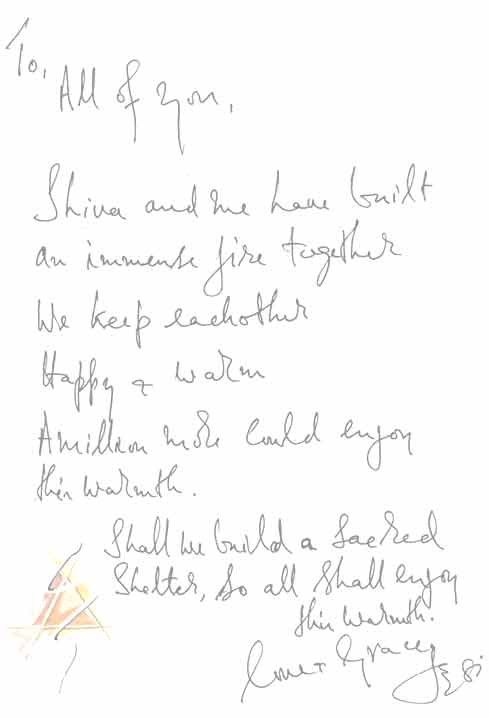 To,
All of you,
Shiva and me have built
an immense fire together
We keep eachother
Happy & warm
A million more could enjoy
this warmth.
Shall we build a sacred
Shelter, so all shall enjoy
this warmth.
Love & Grace